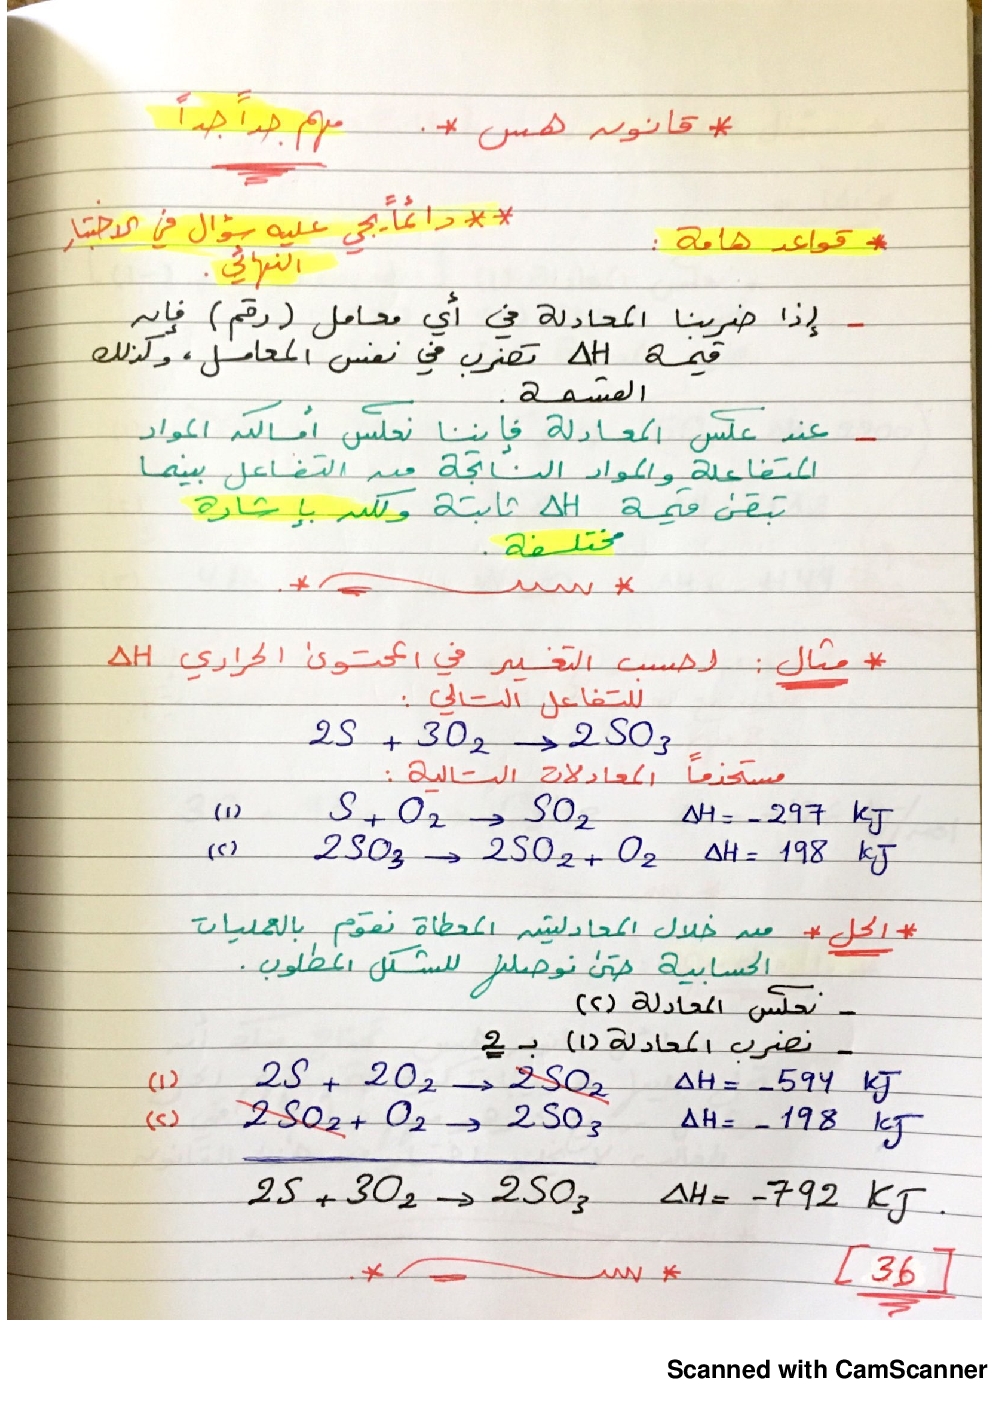 * قانون هس *. مهم جداً جداً
* قواعد هامة :
** دائماً يجي عليه سؤال في الاختبار
النهائي .
- إذا ضربنا المعادلة في أي معامل (رقم) فإن
قيمة ΔH تضرب في نفس المعامل ، وكذلك
القسمة .
- عند عكس المعادلة فإننا نعكس أماكن المواد
المتفاعلة والمواد الناتجة من التفاعل بينما
تبقى قيمة ΔH ثابتة ولكن بإشارة
مختلفة .
* مثال : احسب التغير في المحتوى الحراري ΔH
للتفاعل التالي :
2S + 3O₂ → 2SO₃
مستخدماً المعادلات التالية :
(١) S + O₂ → SO₂ ΔH = -297 KJ
(٢) 2SO₃ → 2SO₂ + O₂ ΔH = 198 KJ
* الحل * من خلال المعادلتين المعطاة نقوم بالعمليات
الحسابية حتى نوصل للشكل المطلوب .
- نعكس المعادلة (٢)
- نضرب المعادلة (١) بـ 2
(١) 2S + 2O₂ → 2SO₂ ΔH = -594 KJ
(٢) 2SO₂ + O₂ → 2SO₃ ΔH = -198 KJ
2S + 3O₂ → 2SO₃ ΔH = -792 KJ .
[36]
Scanned with CamScanner